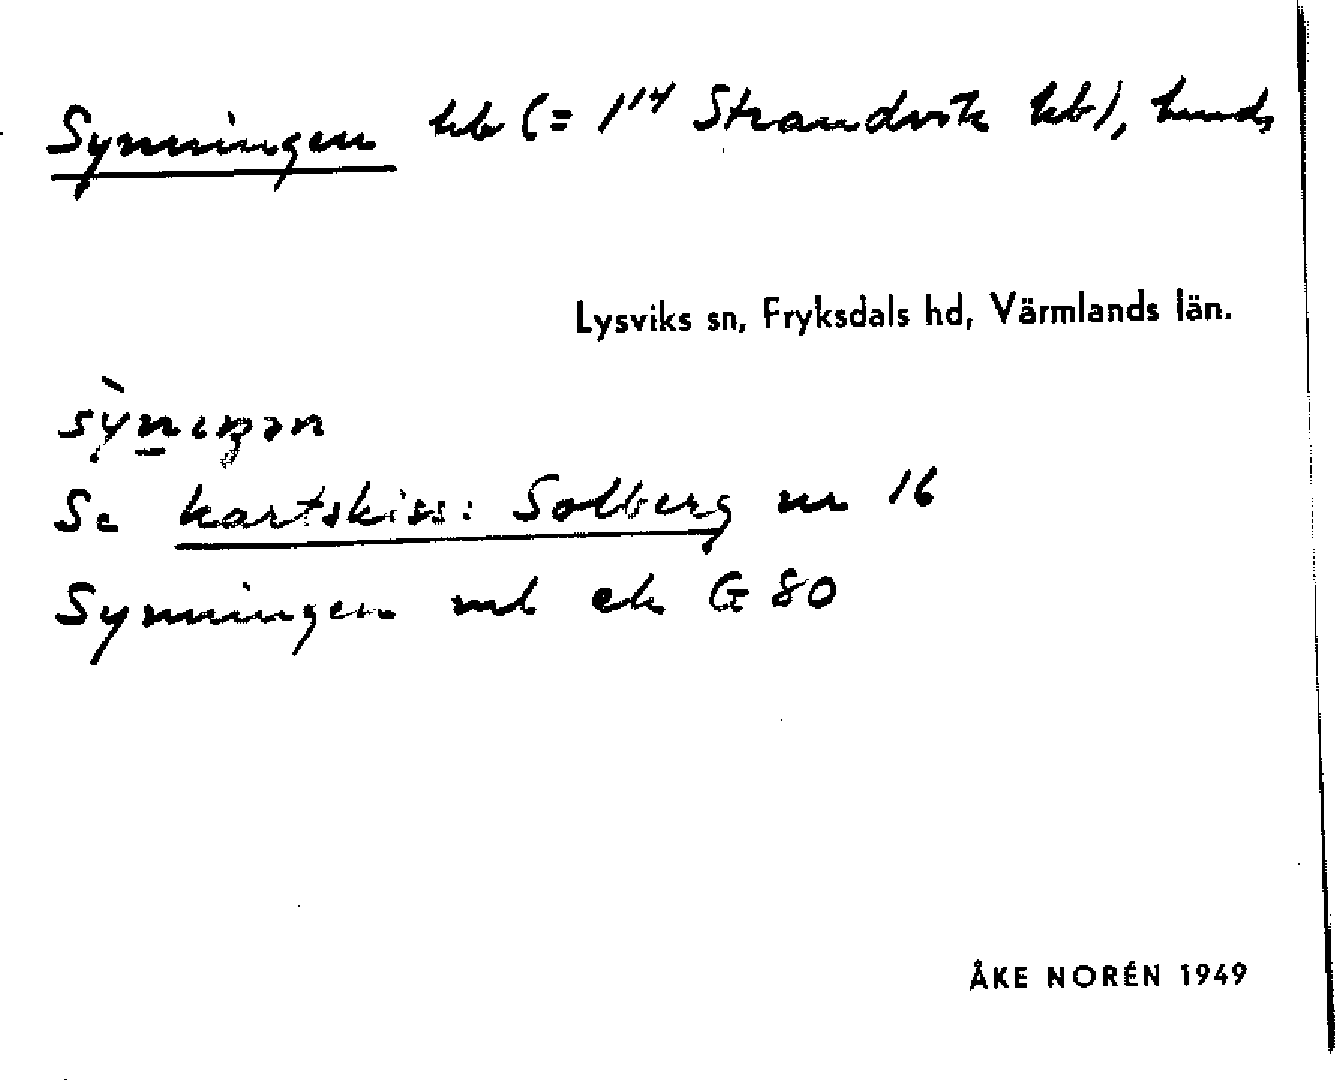 Synningen hb (= 1¹⁴ Strandvik hb), hmds
Lysviks sn, Fryksdals hd, Värmlands län.
sỳn̲ıŋən
Se kartskiss: Solberg nr 16
Synningen ek G 80
ÅKE NORÉN 1949